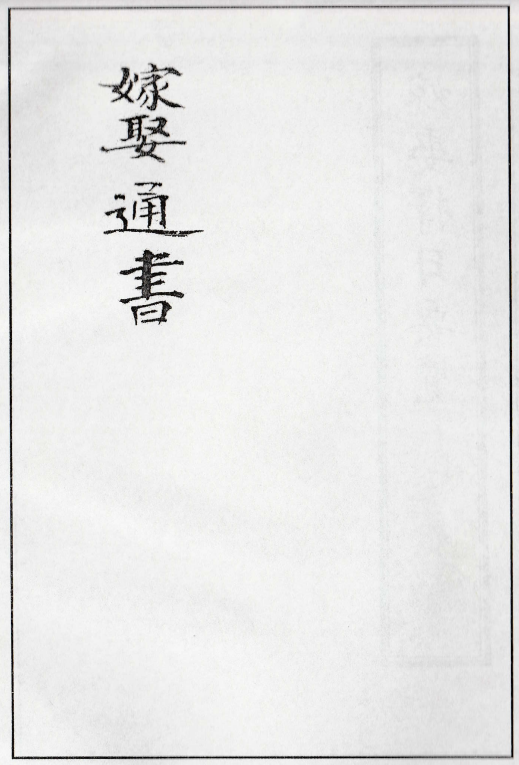 嫁娶通書